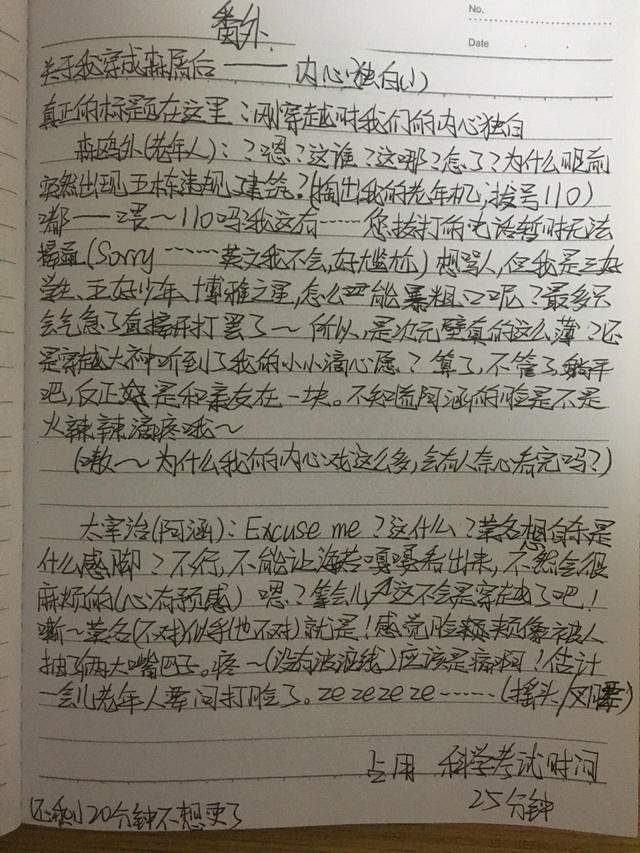 No.
Date
番外
关于我穿成森鸥后——内心独白(1)
真正的标题在这里：刚穿越时我们的内心独白
森鸥外(老年人)：？嗯？这谁？这哪？怎了？为什么眼前
突然出现五栋违规建筑？(掏出我的老年机，拨号110)
嘟——喂～110吗？我这有……您拨打的电话暂时无法
接通(Sorry……英文我不会,好尴尬)想骂人,但我是三好
学生、五好少年、博雅之星,怎么能暴粗口呢？最多只
会气急了直接开打罢了～所以,是次元壁真的这么薄？还
是穿越大神听到了我的小小滴心愿？算了,不管了躺平
吧,反正是和亲友在一块。不知道阿涵的脸是不是
火辣辣滴疼哦～
(嗷～为什么我们的内心戏这么多,会有人奈心看完吗？)
太宰治(阿涵)：Excuse me？这什么？莫名想自杀是
什么感脚？不行,不能让海苔嘎嘎看出来,不然会很
麻烦的(心有预感)嗯？等会儿这不会是穿越了吧！
嘶～莫名(不对)似乎(也不对)就是！感觉脸颊像被人
抽了俩大嘴巴子。疼～(没有波浪线)应该是痛啊！估计
一会儿老年人要问打脸了。ze ze ze ze……(摇头/叉腰)
占用 科学考试时间
25分钟
还剩20分钟不想更了